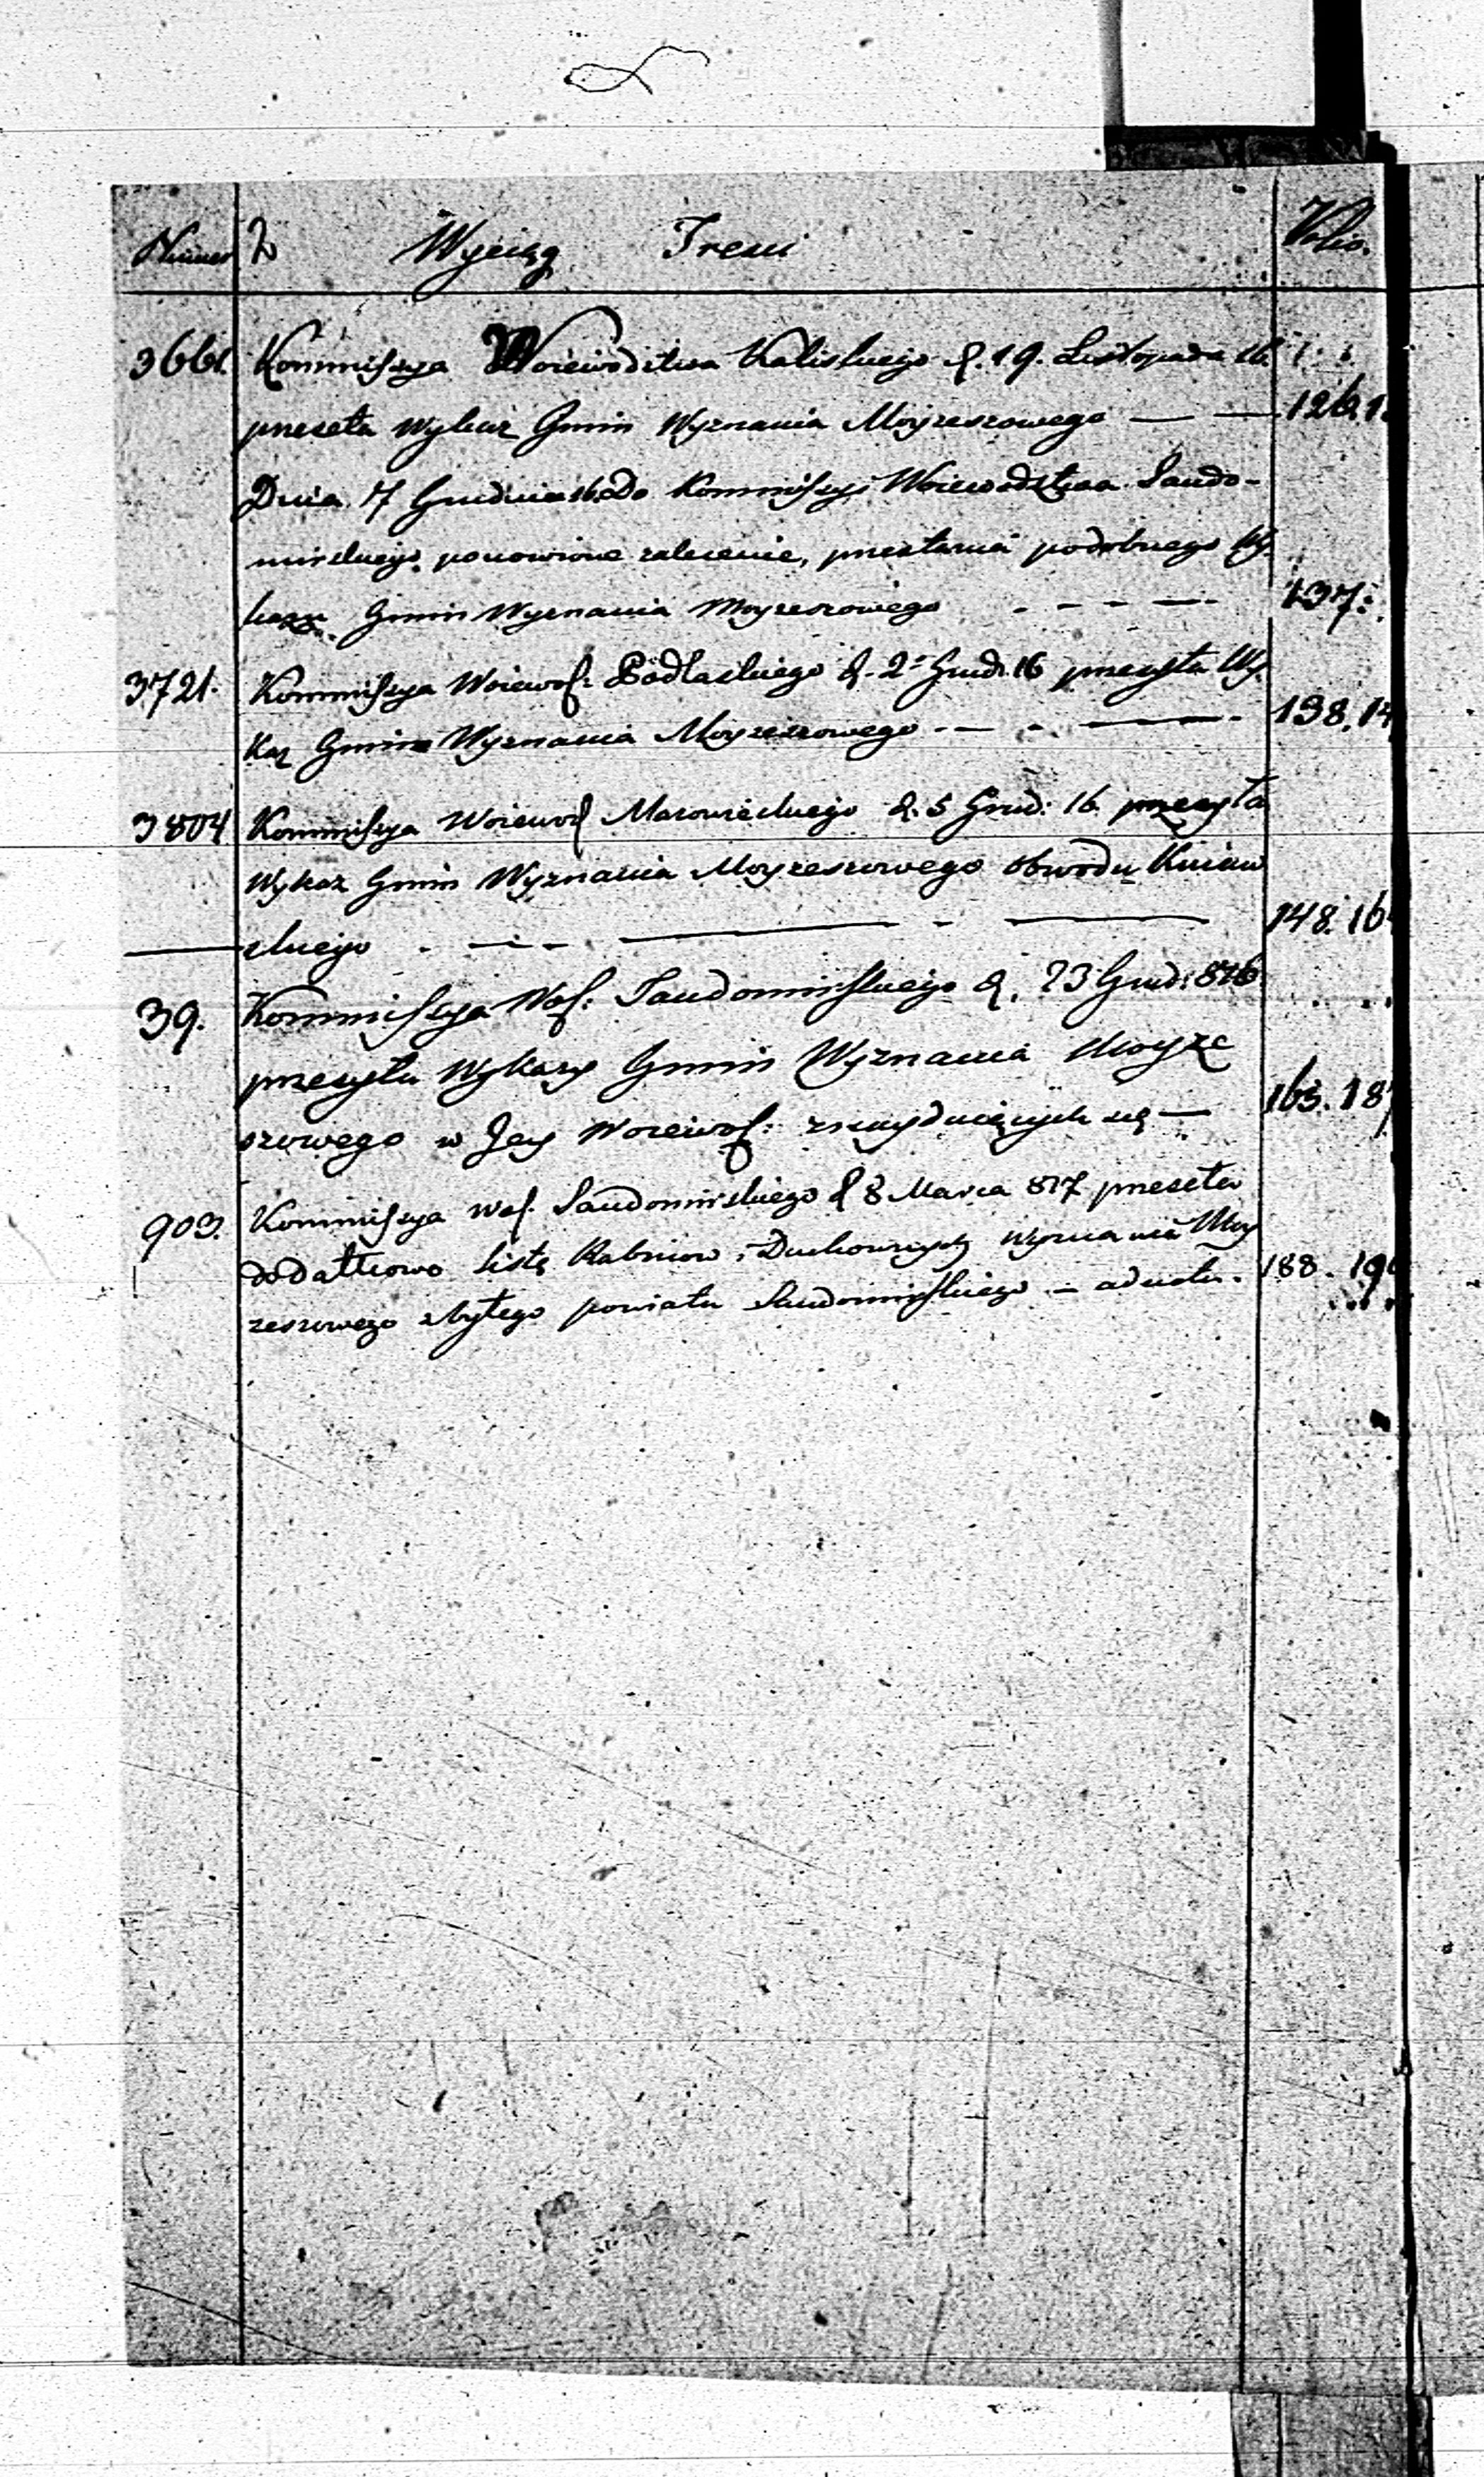 Numer 2 Wyciąg Tresci Folio.
3661. Kommissya Woiewodztwa Kaliskiego d. 19. Listopada 16.
przesła Wykaz Gmin Wyznania Moyzeszowego — — 126.
Dnia 7 Grudnia 16. Do Kommissyi Woiewodztwa Sando-
mirskiego ponowione zalecenie, przesłania podobnego Wy-
kazu Gmin Wyznania Moyzeszowego - - - — 137.
3721. Kommissya Woiewod: Podlaskiego d. 2 Grud. 16 przesyła Wy-
kaz Gmin Wyznania Moyzeszowego - — - — 138.
3804 Kommissya Woiewod Mazowieckiego d. 5 Grud: 16 przesyła
Wykaz Gmin Wyznania Moyzeszowego obwodu Kuiaw
skiego - — - — 148. 16
39. Kommissya Wod: Sandomirskiego d. 23 Grud: 816.
przesyła Wykazy Gmin Wyznania Moyze
szowego w Jey Woiewod: znayduiących się — 163. 18
903. Kommissya Wod. Sandomirskiego d 8 Marca 817 przeseła
dodatkowo Listę Rabinow i Duchownych Wyznania Moy
zeszowego z byłego powiatu Sandomirskiego — 188. 19